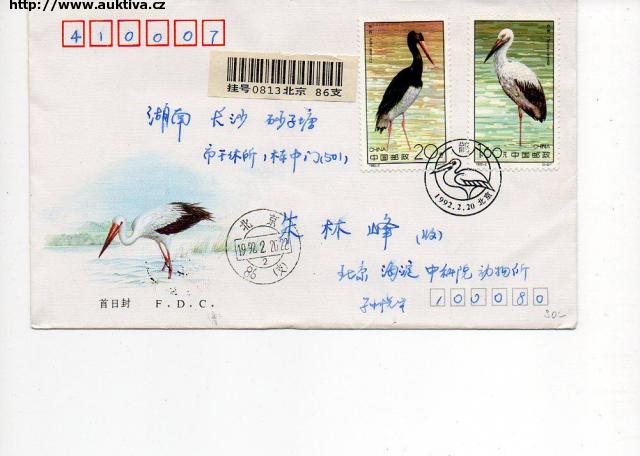 http://www.auktiva.cz
410007
挂号0813北京 86支
湖南 长沙 砂子塘
市干休所1栋中门(501)
朱林峰(收)
北京 海淀 中科院动物所
100080
CHINA
20分
中国邮政
CHINA
160分
中国邮政
鹳
1992.2.20 北京
北京
1992.2.20.22
2
(支)
首日封 F.D.C.